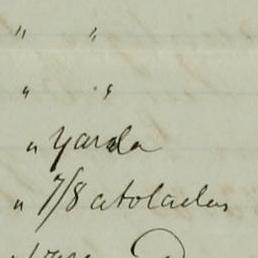 " "
" "
" Yarda
" 7/8 atoladas